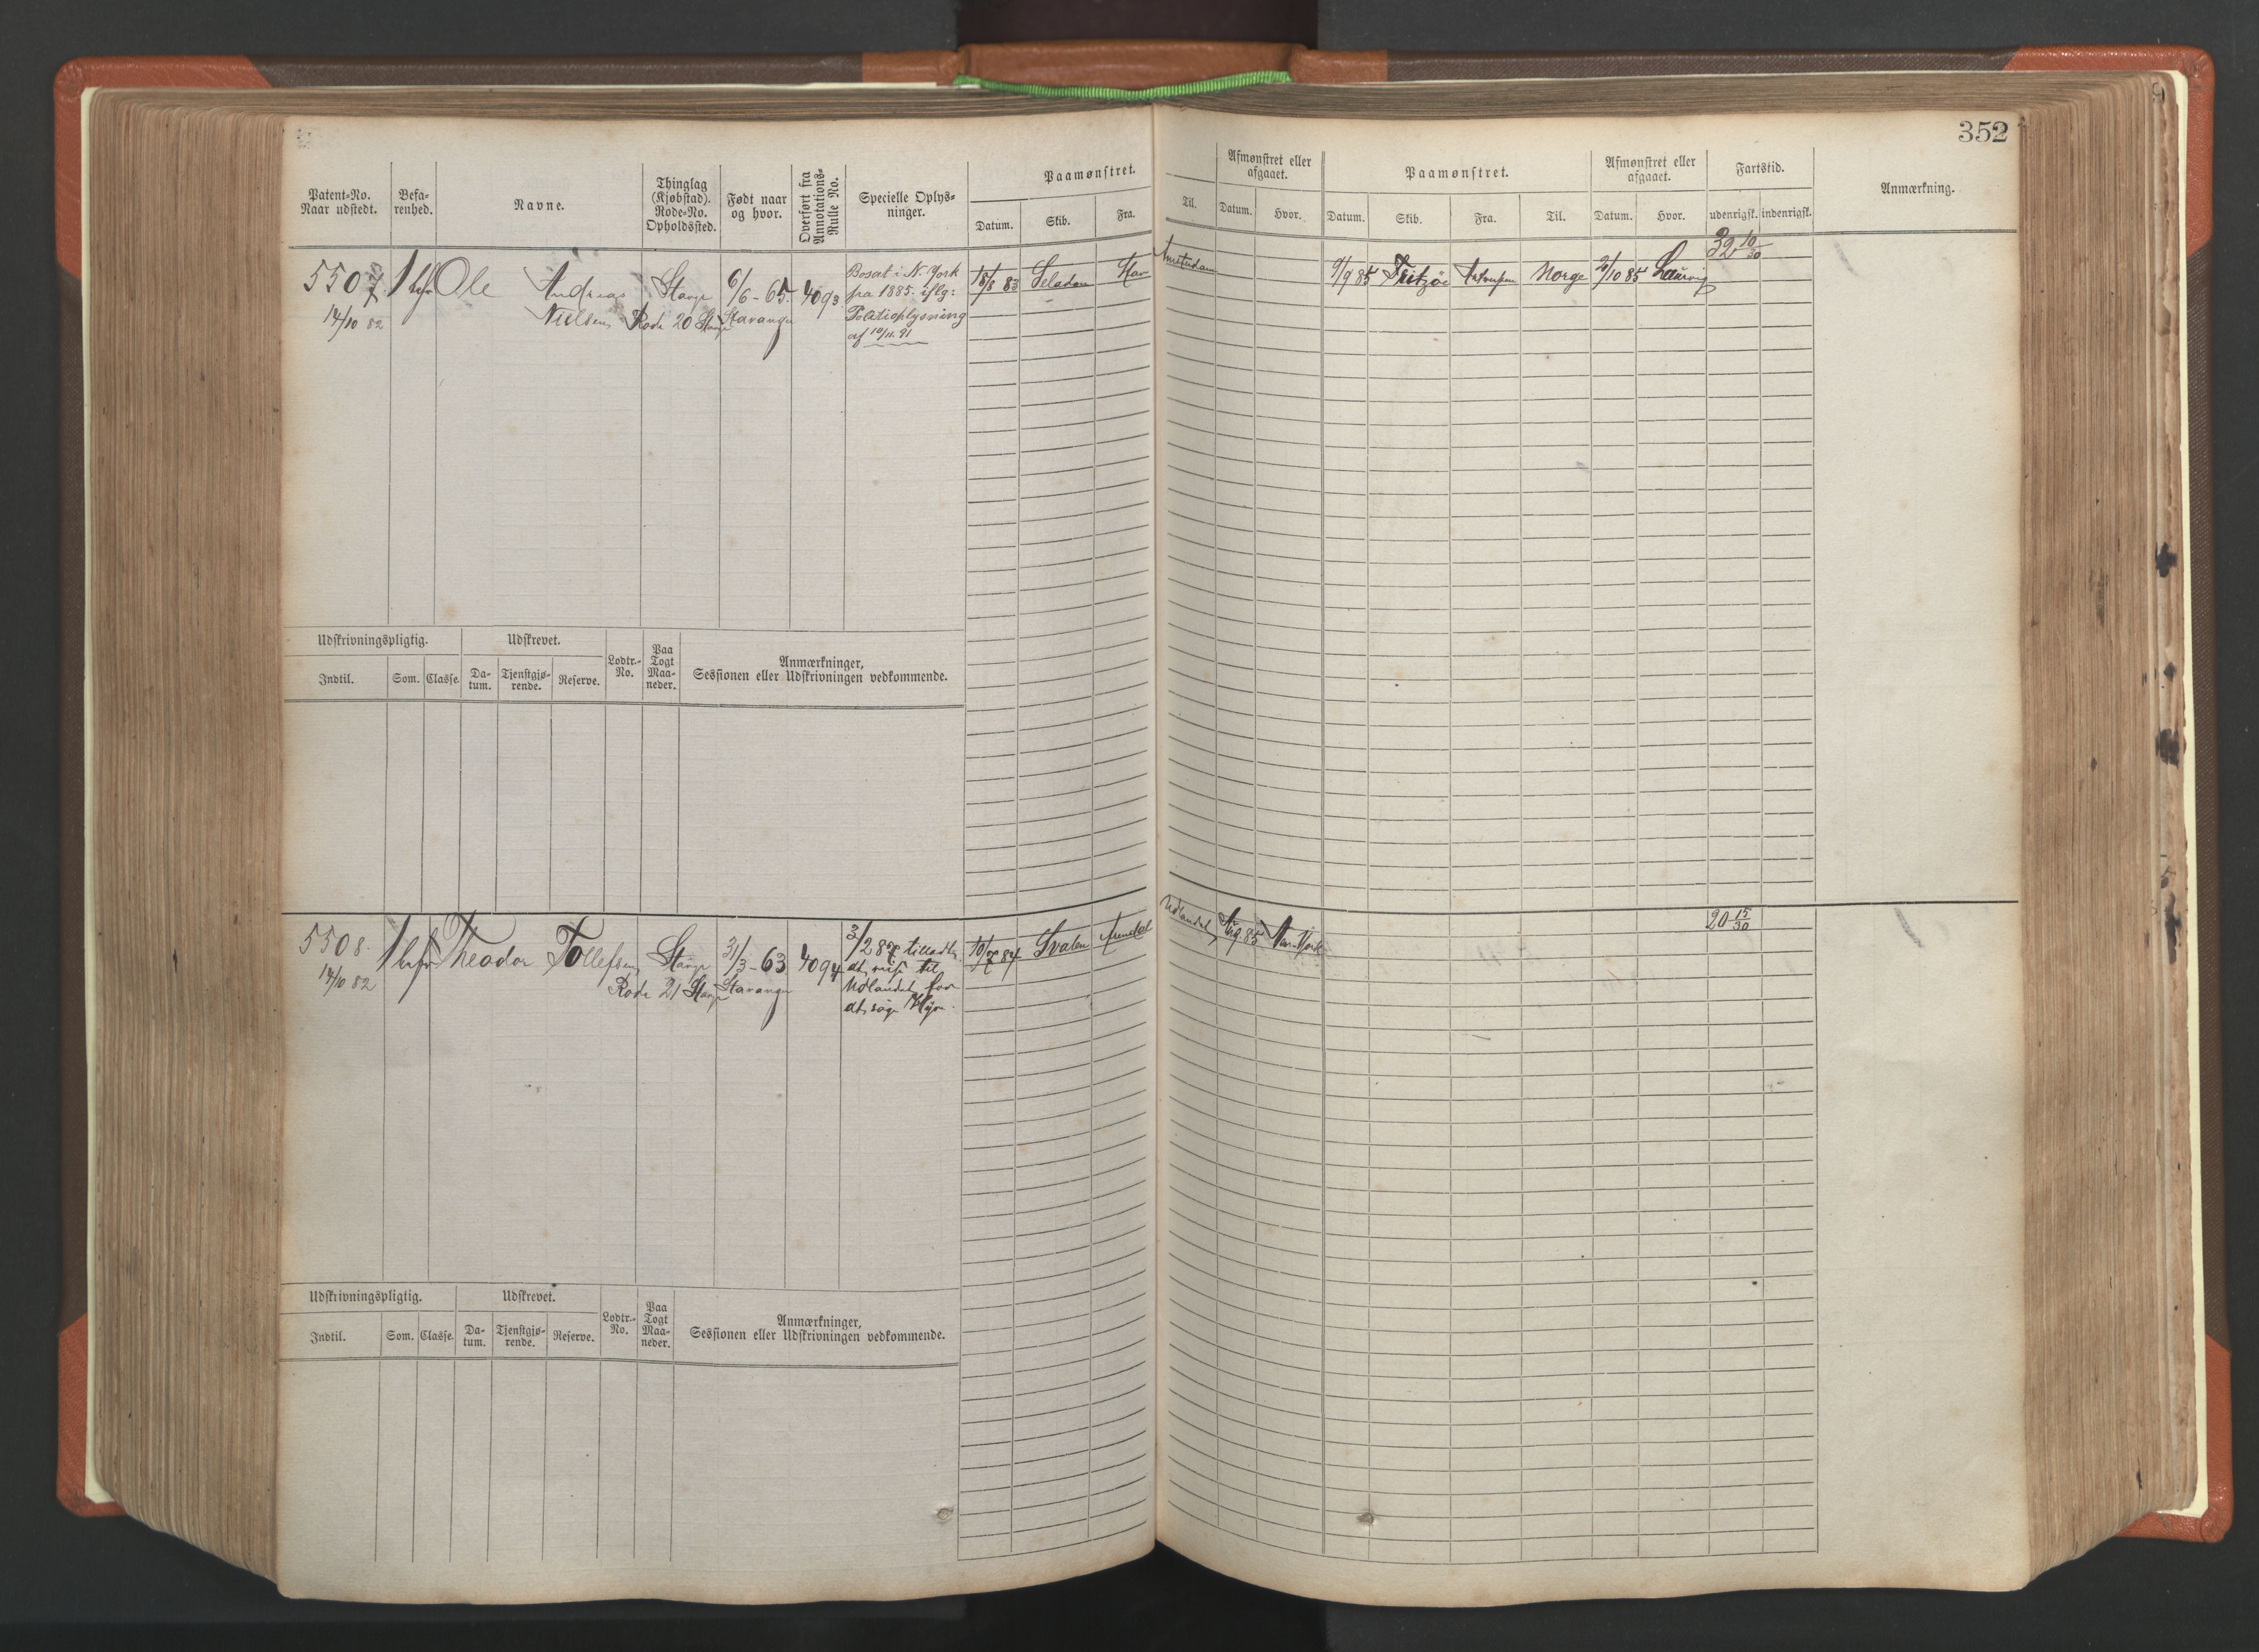 352
Patent-No. Naar udstedt.
Befa-renhed.
Navne.
Thinglag (Kjøbstad). Rode-No. Opholdssted.
Født naar og hvor.
Overført fra Annotations-Rulle No.
Specielle Oplys-ninger.
Paamønstret.
Datum. Skib. Fra. Til.
Afmønstret eller afgaaet.
Datum. Hvor.
Paamønstret.
Datum. Skib. Fra. Til.
Afmønstret eller afgaaet.
Datum. Hvor.
Fartstid.
udenrigsk. indenrigsk.
Anmærkning.
5507 1 bfr Ole Andreas Stavgr 6/6 - 65 4093
14/10 82 Nielsen Rode 20 Stavgr Stavanger
Bosat i N. York
fra 1885. iflg:
Politioplysning
af 10/11. 91
18/8 83 Seladon Stav Amsterdam
9/9 85 Fritzöe Antwerpen Norge /10 85 Laurvig 32 10/30
Udskrivningspligtig. Udskrevet. Lodtr.-No. Paa Togt Maa-neder. Anmærkninger, Sessionen eller Udskrivningen vedkommende.
Indtil. Som. Classe. Da-tum. Tjenstgjø-rende. Reserve.
5508 1 bfr Theodor Tollefsen Stavgr 31/3 - 63 4094
14/10 82 Rode 21 Stavgr Stavanger
3/2 87 tilladt
at reise til
Udlandet for
at søge Hyre.
10/7 84 Svalen Arendal Udlandet Aug 85 New-York 20 15/30
Udskrivningspligtig. Udskrevet. Lodtr.-No. Paa Togt Maa-neder. Anmærkninger, Sessionen eller Udskrivningen vedkommende.
Indtil. Som. Classe. Da-tum. Tjenstgjø-rende. Reserve.